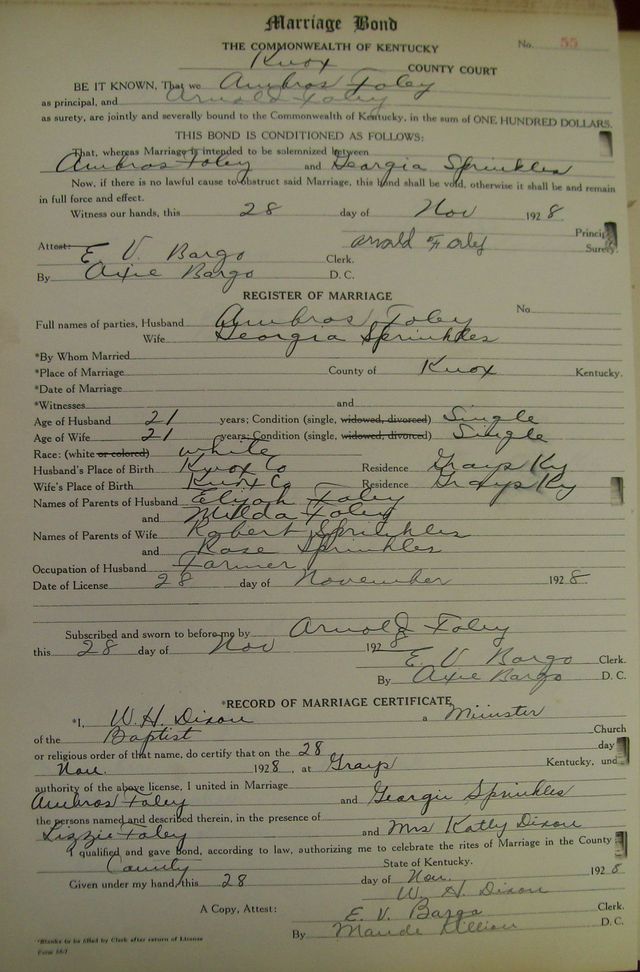 Marriage Bond
THE COMMONWEALTH OF KENTUCKY
No. 55
Knox COUNTY COURT
BE IT KNOWN, That we Ambros Foley
as principal, and Arnold Foley
as surety, are jointly and severally bound to the Commonwealth of Kentucky, in the sum of ONE HUNDRED DOLLARS.
THIS BOND IS CONDITIONED AS FOLLOWS:
That, whereas Marriage is intended to be solemnized between
Ambros Foley and Georgia Sprinkles
Now, if there is no lawful cause to obstruct said Marriage, this bond shall be void, otherwise it shall be and remain
in full force and effect.
Witness our hands, this 28 day of Nov 1928.
Princip
Arnold Foley Surety.
Attest: E. V. Bargo Clerk.
By Axie Bargo D. C.
REGISTER OF MARRIAGE
No.
Full names of parties, Husband Ambros Foley
Wife Georgia Sprinkles
*By Whom Married
*Place of Marriage County of Knox Kentucky.
*Date of Marriage
*Witnesses and
Age of Husband 21 years; Condition (single, widowed, divorced) Single
Age of Wife 21 years; Condition (single, widowed, divorced) Single
Race: (white or colored) white
Husband's Place of Birth Knox Co Residence Grays Ky
Wife's Place of Birth Knox Co Residence Grays Ky
Names of Parents of Husband Elijah Foley
and Milda Foley
Names of Parents of Wife Robert Sprinkles
and Rose Sprinkles
Occupation of Husband Farmer
Date of License 28 day of November 1928
Subscribed and sworn to before me by Arnold Foley
this 28 day of Nov 1928
E. V. Bargo Clerk.
By Axie Bargo D. C.
*RECORD OF MARRIAGE CERTIFICATE
*I, W. H. Dixon a Minister
of the Baptist Church
or religious order of that name, do certify that on the 28 day
Nov. 1928, at Grays Kentucky, und
authority of the above license, I united in Marriage
Ambros Foley and Georgie Sprinkles
the persons named and described therein, in the presence of
Lizzie Foley and Mrs Katly Dixon
I qualified and gave bond, according to law, authorizing me to celebrate the rites of Marriage in the County
County State of Kentucky.
Given under my hand, this 28 day of Nov. 1928
W. H. Dixon
A Copy, Attest: E. V. Bargo Clerk.
By Maude Killion D. C.
*Blanks to be filled by Clerk after return of License